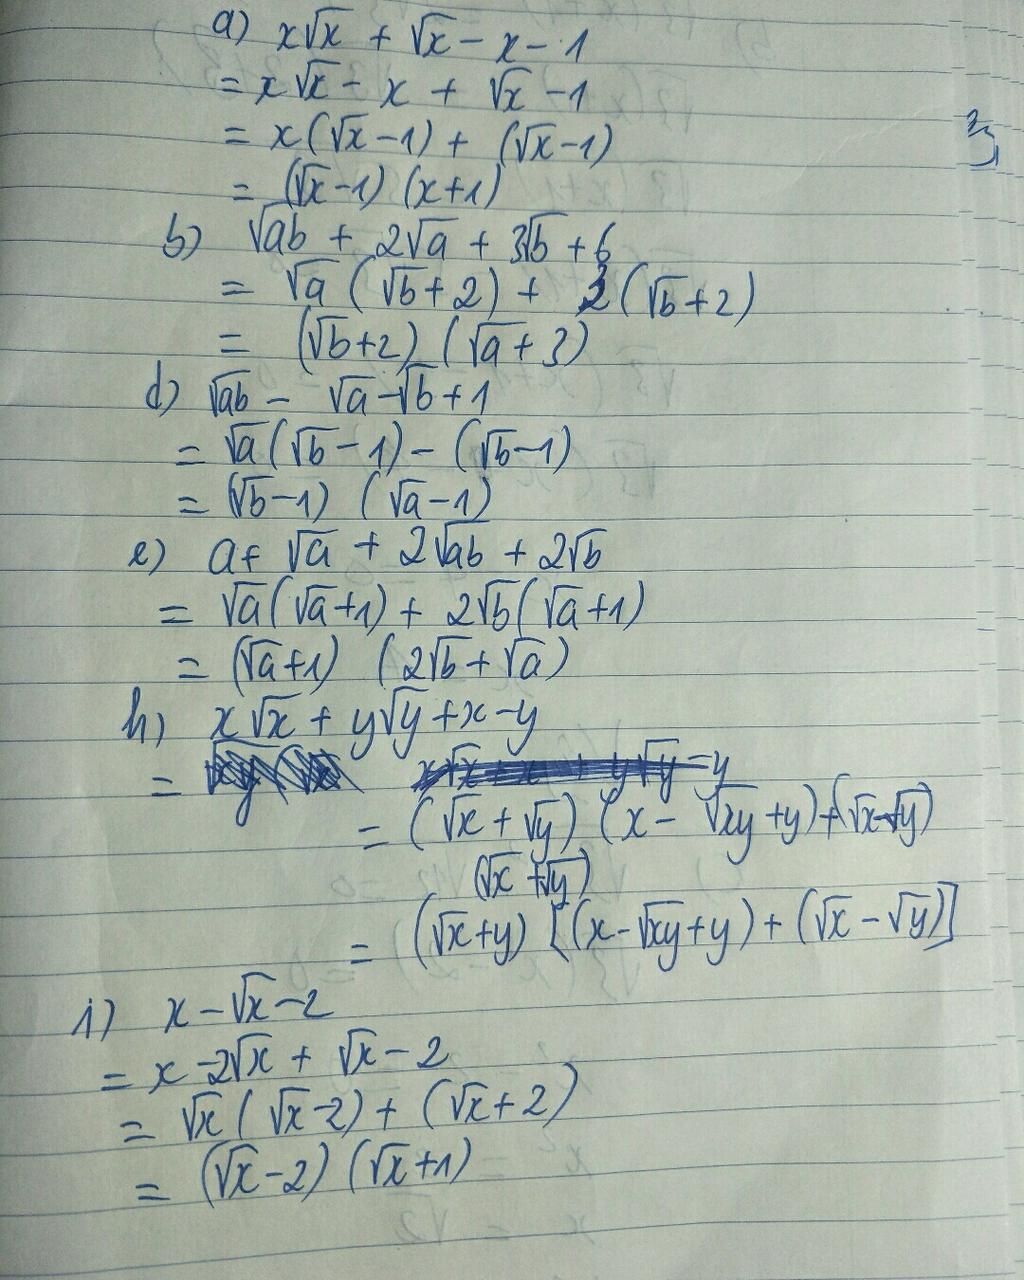 a) x√x + √x - x - 1
= x√x - x + √x - 1
= x(√x - 1) + (√x - 1)
= (√x - 1) (x + 1)
b) √ab + 2√a + 3√b + 6
= √a (√b + 2) + 3 (√b + 2)
= (√b + 2) (√a + 3)
d) √ab - √a - √b + 1
= √a (√b - 1) - (√b - 1)
= (√b - 1) (√a - 1)
e) a + √a + 2√ab + 2√b
= √a (√a + 1) + 2√b (√a + 1)
= (√a + 1) (2√b + √a)
h) x√x + y√y + x - y
=
= (√x + √y) (x - √xy + y) + (√x - √y)
(√x + √y)
= (√x + y) [(x - √xy + y) + (√x - √y)]
i) x - √x - 2
= x - 2√x + √x - 2
= √x (√x - 2) + (√x + 2)
= (√x - 2) (√x + 1)